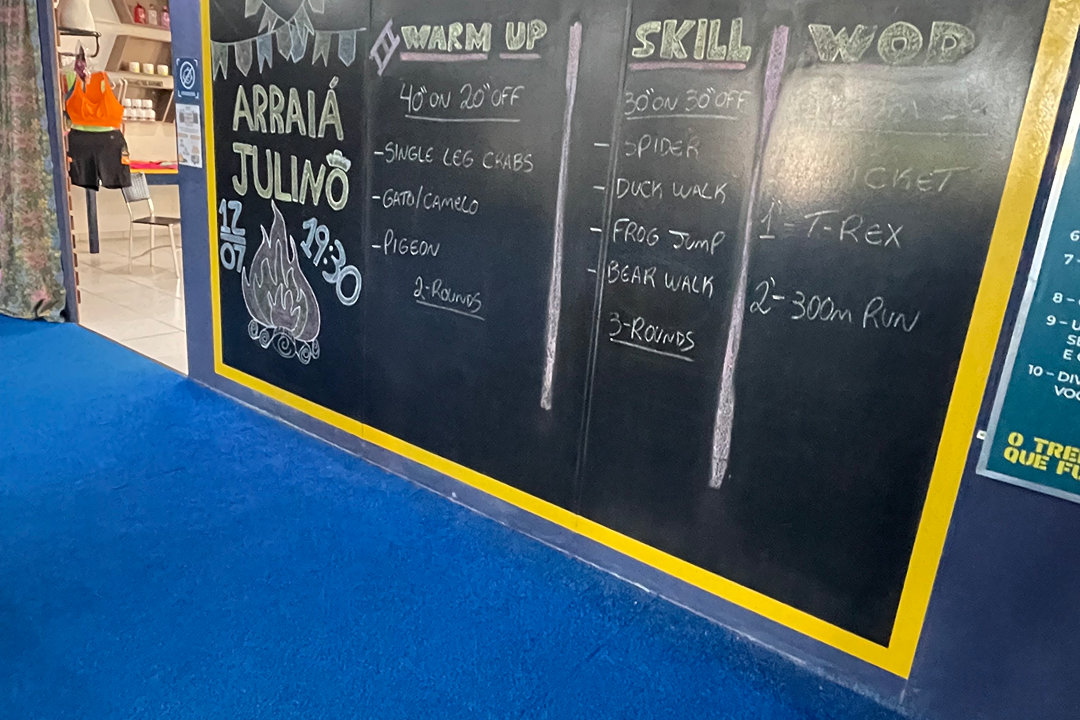 ARRAIÁ
JULINÔ
12
07
19:30
WARM UP
40" ON 20" OFF
-SINGLE LEG CRABS
-GATO/CAMELO
-PIGEON
2-ROUNDS
SKILL
30" ON 30" OFF
- SPIDER
- DUCK WALK
- FROG JUMP
- BEAR WALK
3-ROUNDS
WOD
1' = T-REX
2'- 300m RUN
7 -
8 -
9 - U
SE
E
10 - DIV
VOC
O TRE
QUE FU